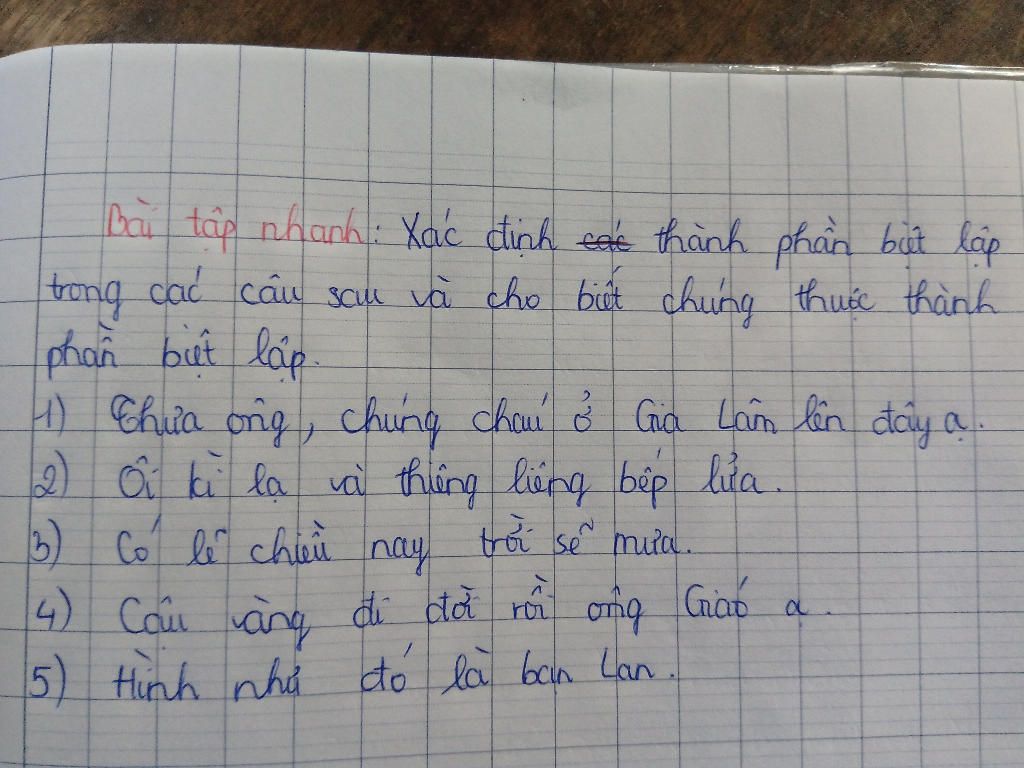 Bài tập nhanh: Xác định các thành phần biệt lập
trong các câu sau và cho biết chúng thuộc thành
phần biệt lập.
1) Thưa ông, chúng cháu ở Gia Lâm lên đây ạ.
2) Ôi kì lạ và thiêng liêng bếp lửa.
3) Có lẽ chiều nay trời sẽ mưa.
4) Cậu vàng đi đời rồi ông Giáo ạ.
5) Hình như đó là bạn Lan.